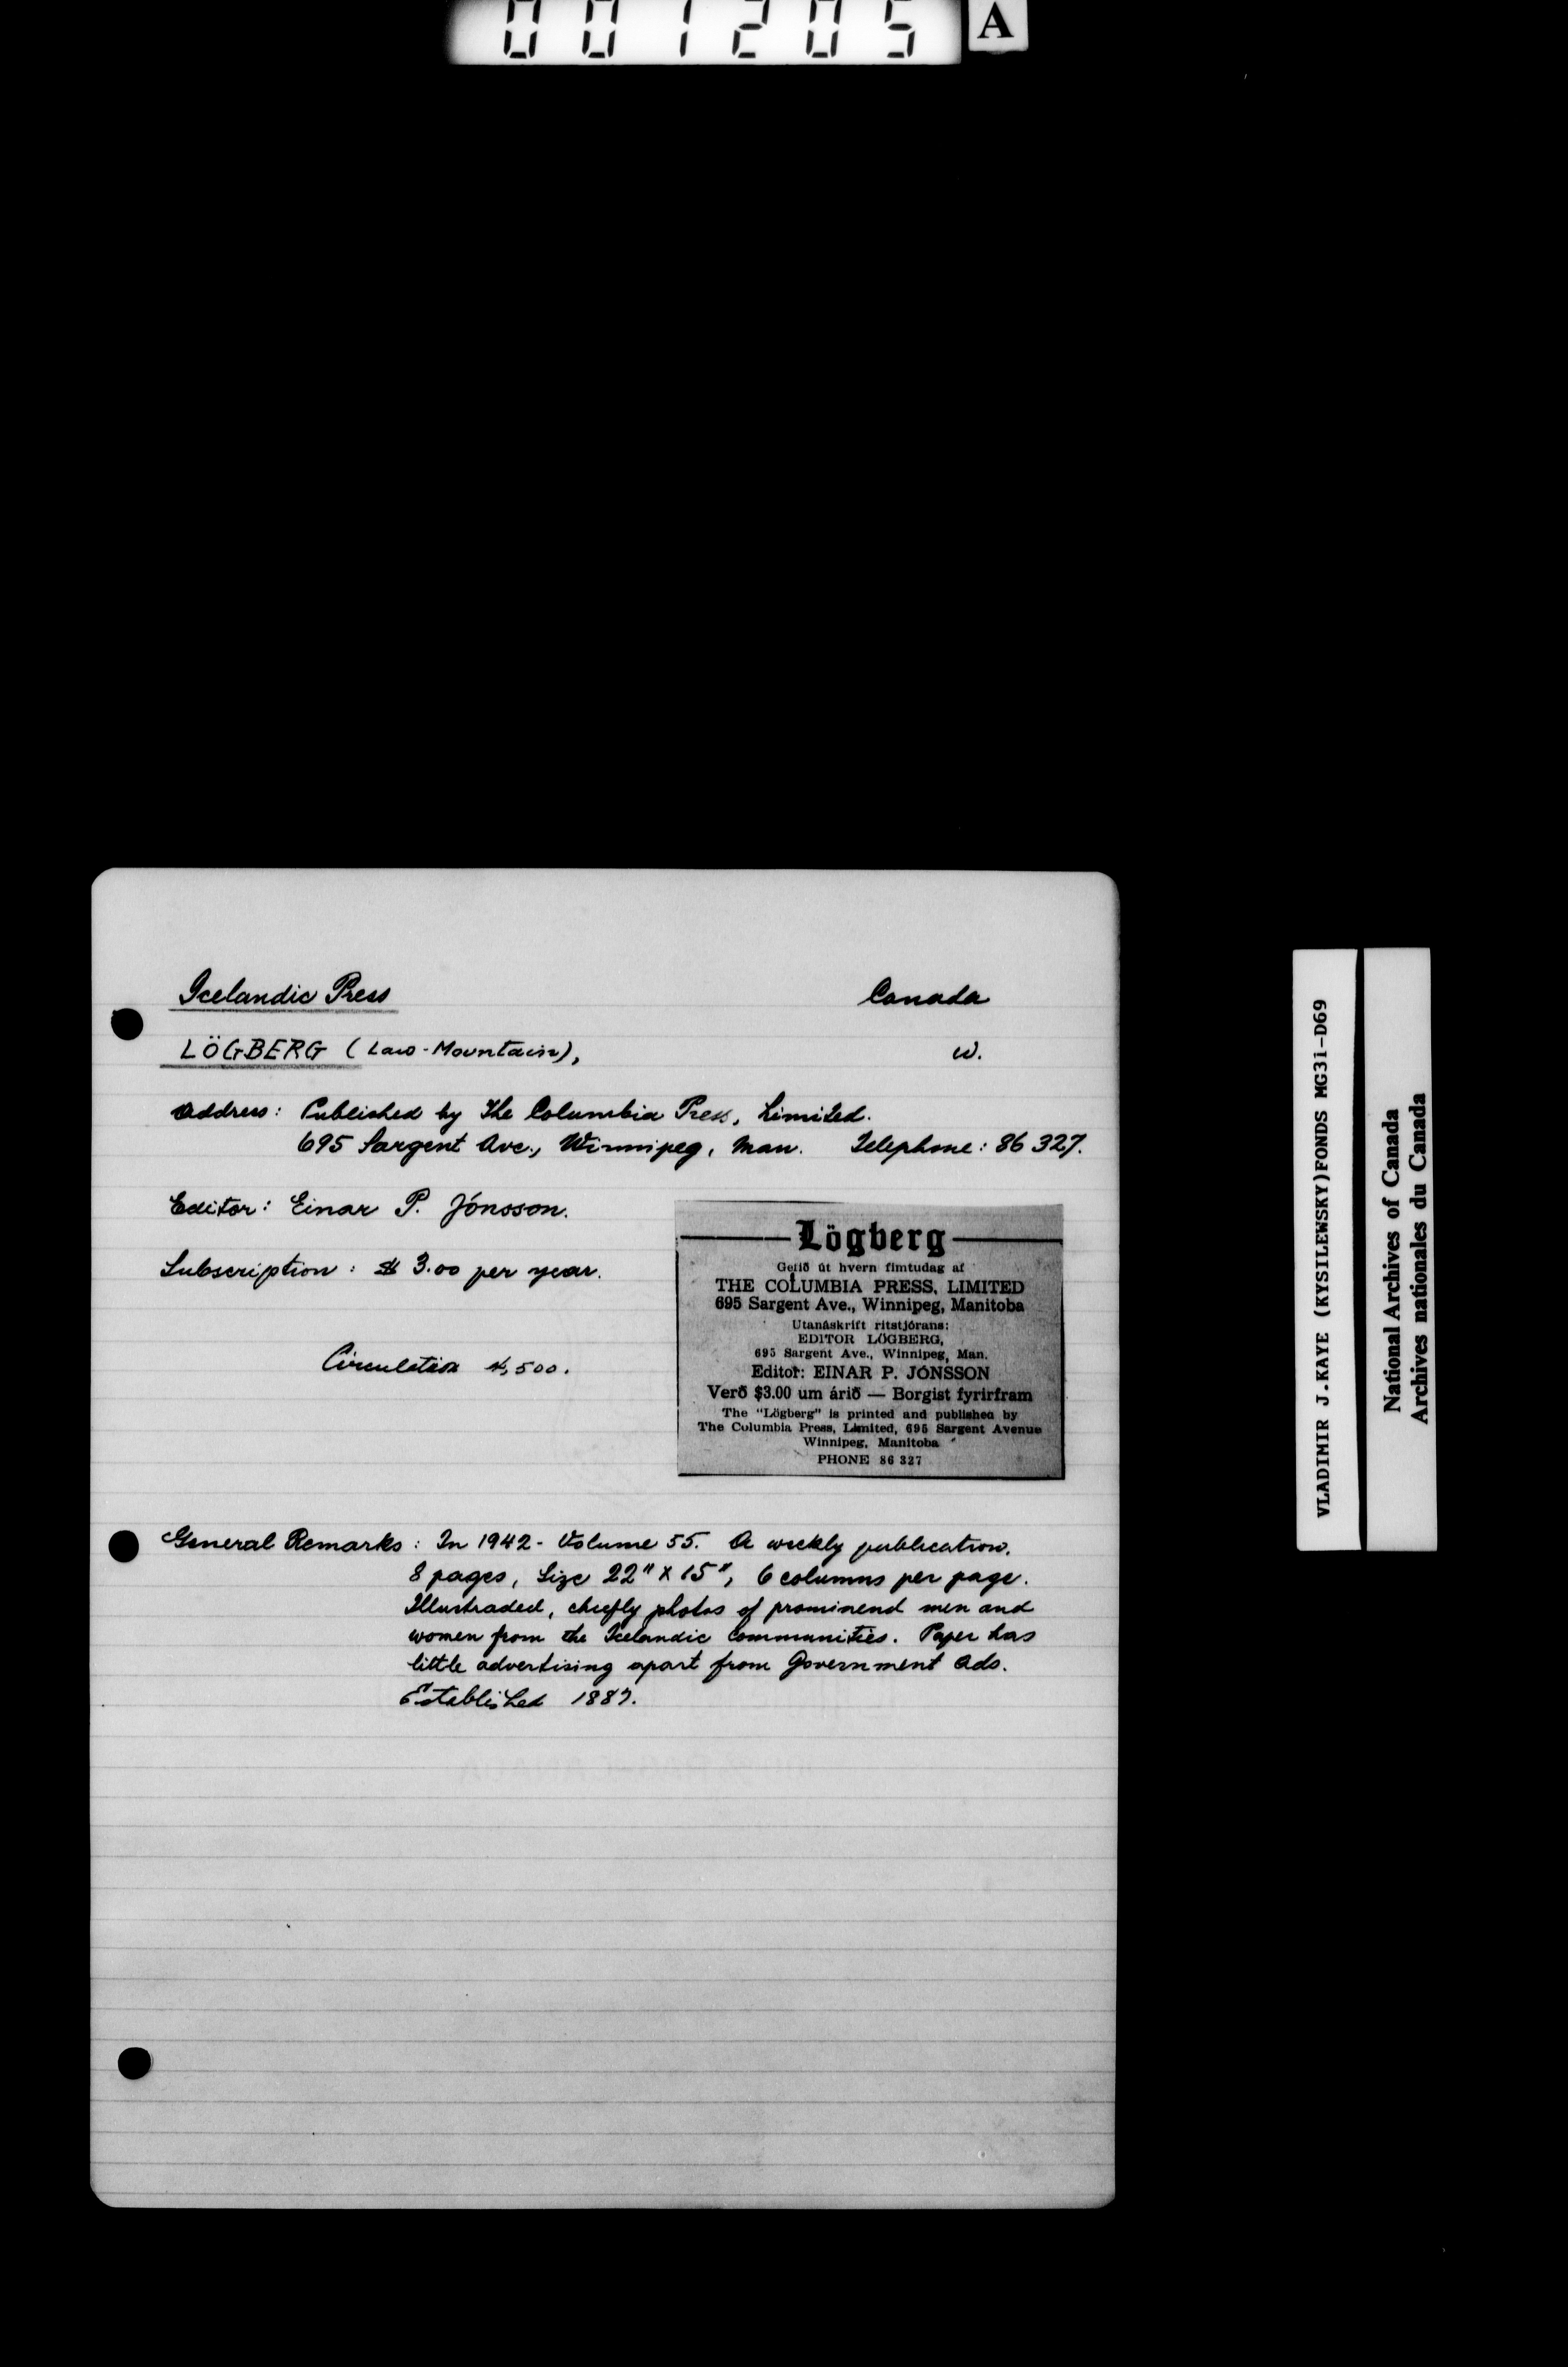 001205 A
Icelandic Press Canada
LÖGBERG (Law-Mountain), w.
Address: Published by The Columbia Press, Limited.
695 Sargent Ave., Winnipeg, Man. Telephone: 86 327.
Editor: Einar P. Jónsson.
Subscription: $ 3.00 per year.
Circulation 4,500.
Lögberg
Gefið út hvern fimtudag af
THE COLUMBIA PRESS, LIMITED
695 Sargent Ave., Winnipeg, Manitoba
Utanáskrift ritstjórans:
EDITOR LÖGBERG,
695 Sargent Ave., Winnipeg, Man.
Editor: EINAR P. JÓNSSON
Verð $3.00 um árið — Borgist fyrirfram
The "Lögberg" is printed and published by
The Columbia Press, Limited, 695 Sargent Avenue
Winnipeg, Manitoba
PHONE 86 327
General Remarks: In 1942 - Volume 55. A weekly publication.
8 pages, Size 22" x 15", 6 columns per page.
Illustraded, chiefly photos of prominend men and
women from the Icelandic Communities. Paper has
little advertising apart from Government Ads.
Established 1887.
VLADIMIR J.KAYE (KYSILEWSKY)FONDS MG31-D69
National Archives of Canada
Archives nationales du Canada